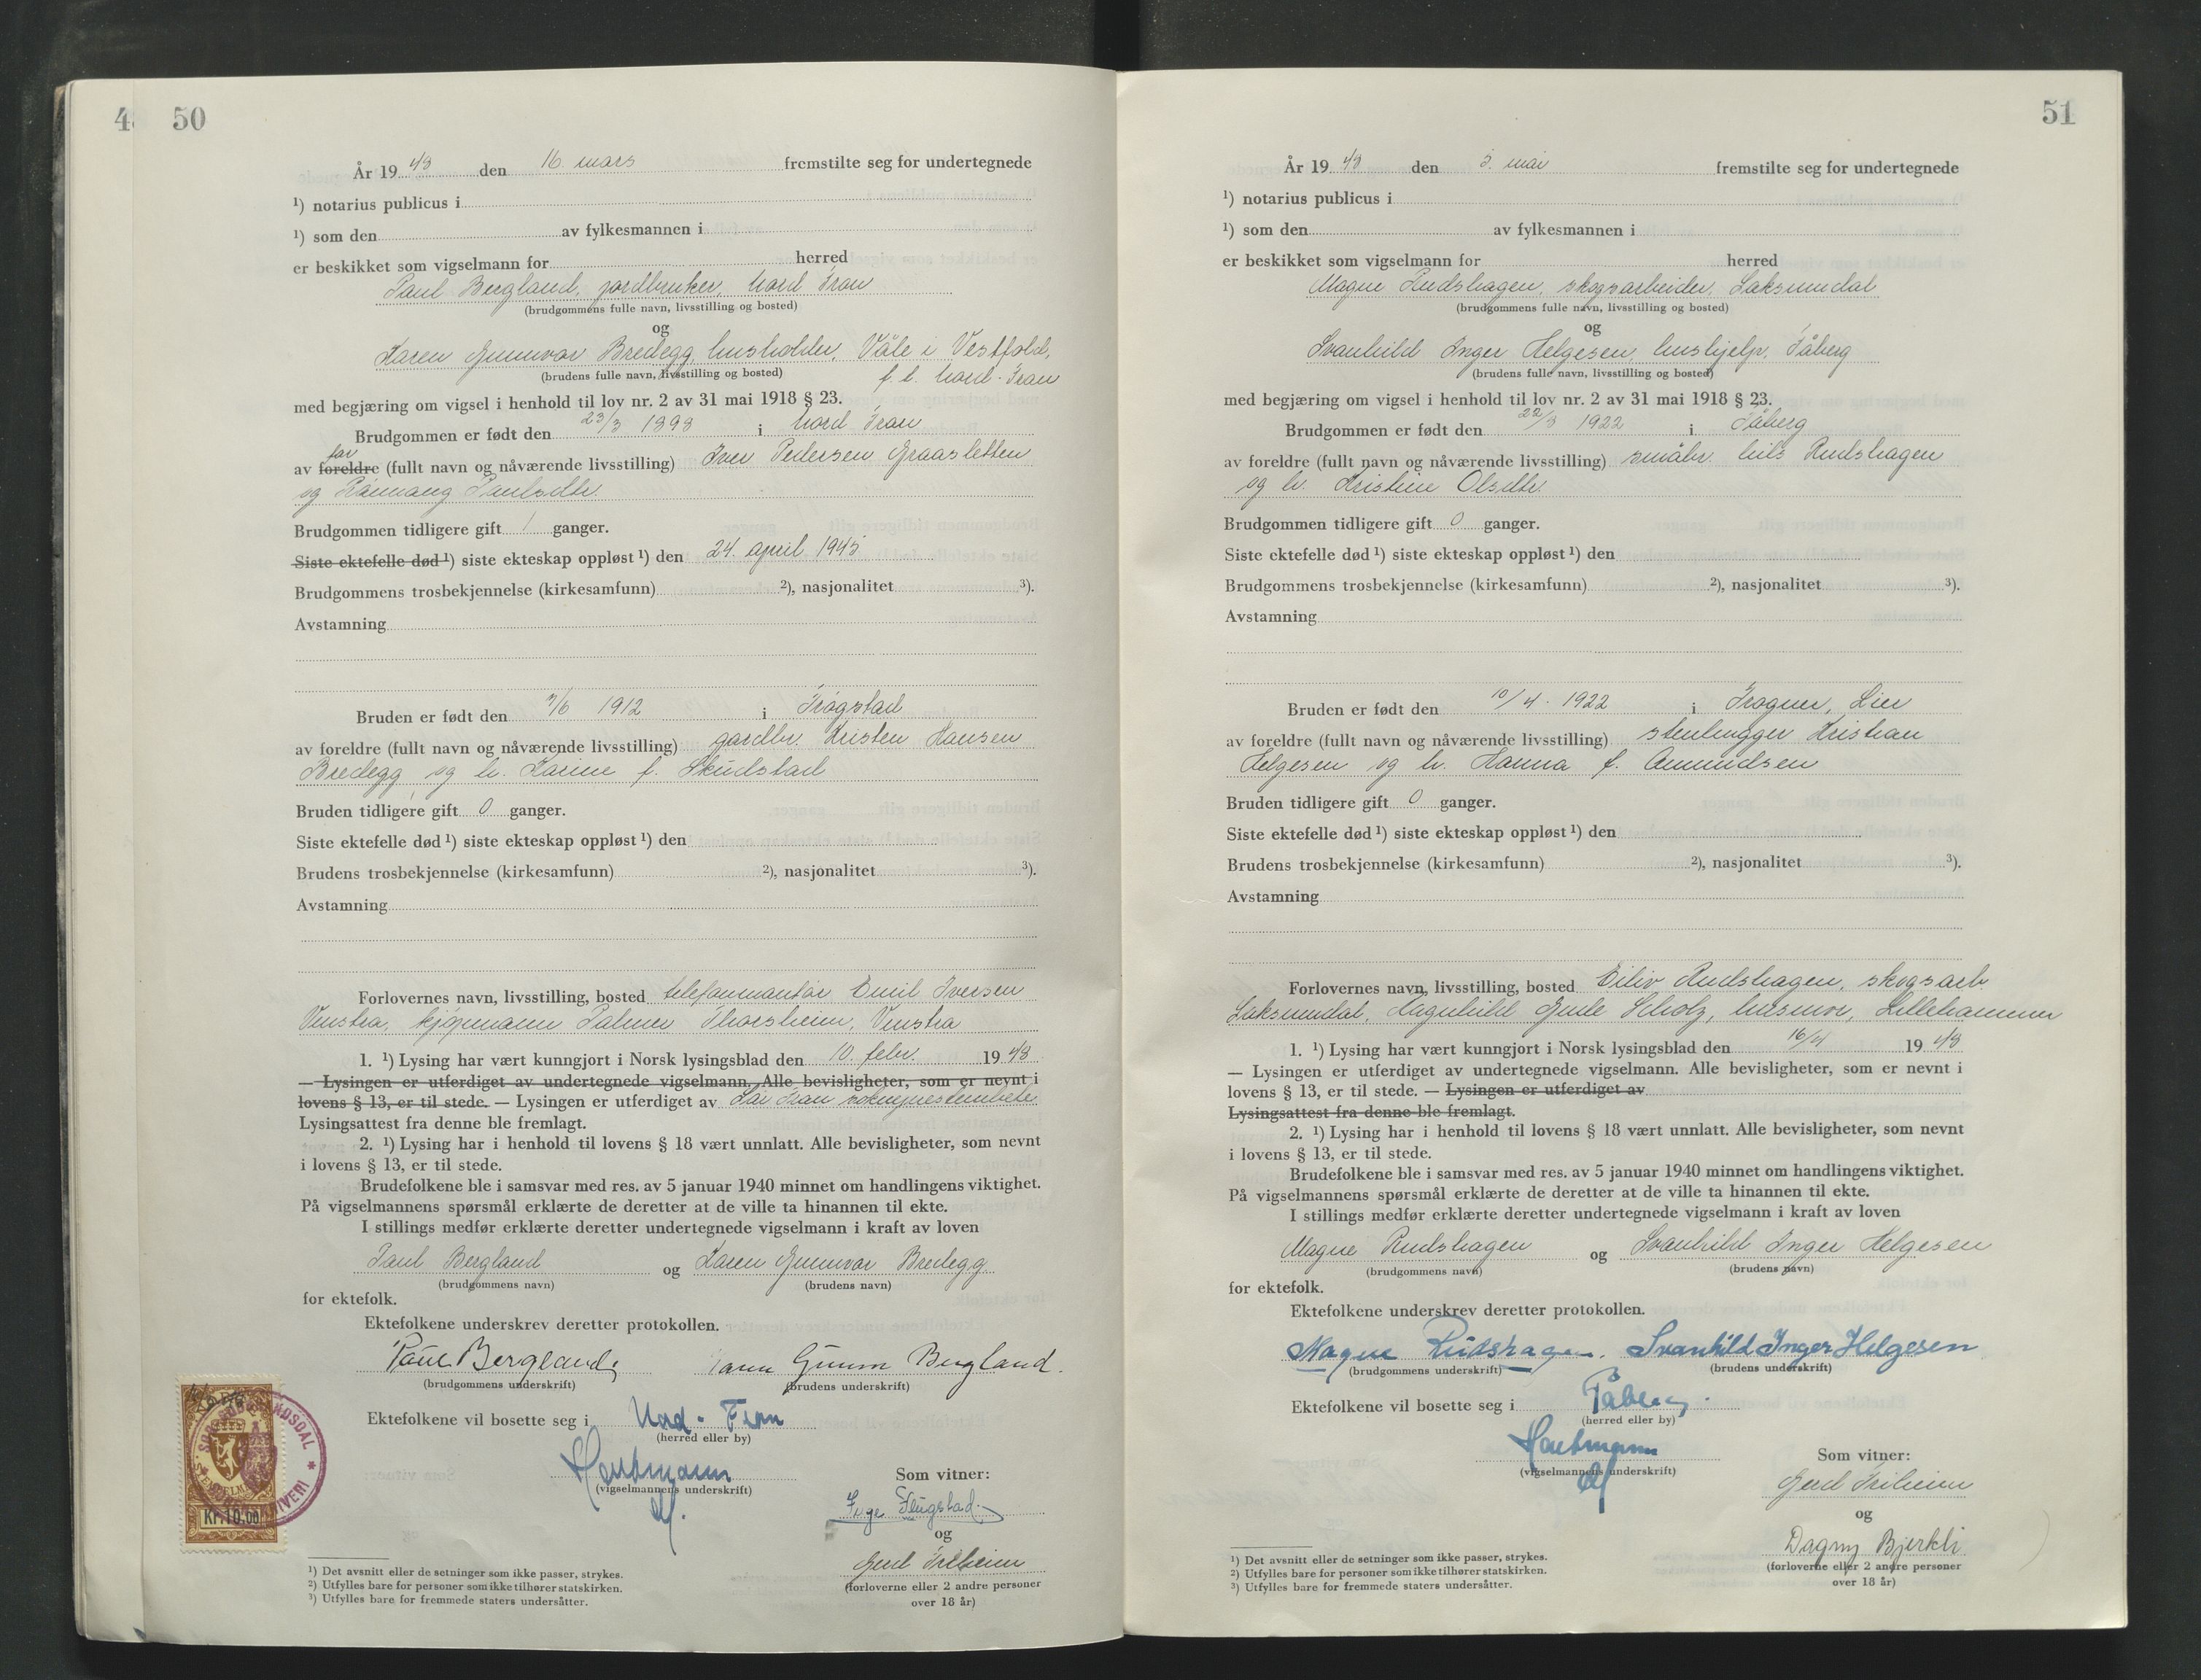 4
50
År 19 48 den 16. mars fremstilte seg for undertegnede
¹) notarius publicus i
¹) som den av fylkesmannen i
er beskikket som vigselmann for herred
Paul Bergland, jordbruker, Nord Fron
(brudgommens fulle navn, livsstilling og bosted)
og
Karen Gunnvor Bredegg, husholder, Våle i Vestfold,
(brudens fulle navn, livsstilling og bosted) f. t. Nord-Fron
med begjæring om vigsel i henhold til lov nr. 2 av 31 mai 1918 § 23.
Brudgommen er født den 23/3 1898 i Nord Fron
far
av foreldre (fullt navn og nåværende livsstilling) Iver Pedersen Graasletten
og Rannaug Paulsdtr.
Brudgommen tidligere gift 1 ganger.
Siste ektefelle død ¹) siste ekteskap oppløst ¹) den 24. april 1945
Brudgommens trosbekjennelse (kirkesamfunn) ²), nasjonalitet ³).
Avstamning
Bruden er født den 7/6 1912 i Trøgstad
av foreldre (fullt navn og nåværende livsstilling) gardbr. Kristen Hansen
Bredegg og h. Karine f. Skudstad
Bruden tidligere gift 0 ganger.
Siste ektefelle død ¹) siste ekteskap oppløst ¹) den
Brudens trosbekjennelse (kirkesamfunn) ²), nasjonalitet ³).
Avstamning
Forlovernes navn, livsstilling, bosted telefonmontør Emil Iversen
Vinstra, kjøpmann Palmer Thorsheim, Vinstra
1. ¹) Lysing har vært kunngjort i Norsk lysingsblad den 10. febr. 19 48
— Lysingen er utferdiget av undertegnede vigselmann. Alle bevisligheter, som er nevnt i
lovens § 13, er til stede. — Lysingen er utferdiget av Sør Fron sokneprestembete
Lysingsattest fra denne ble fremlagt.
2. ¹) Lysing har i henhold til lovens § 18 vært unnlatt. Alle bevisligheter, som nevnt
i lovens § 13, er til stede.
Brudefolkene ble i samsvar med res. av 5 januar 1940 minnet om handlingens viktighet.
På vigselmannens spørsmål erklærte de deretter at de ville ta hinannen til ekte.
I stillings medfør erklærte deretter undertegnede vigselmann i kraft av loven
Paul Bergland og Karen Gunnvor Bredegg
(brudgommens navn) (brudens navn)
for ektefolk.
Ektefolkene underskrev deretter protokollen.
Paul Bergland Gunn Bergland.
(brudgommens underskrift) (brudens underskrift)
Ektefolkene vil bosette seg i Nord-Fron
(herred eller by)
Hartmann
(vigselmannens underskrift)
Kr. 10.00
Som vitner:
Inge Flugstad
og
Gerd Trilheim
(forloverne eller 2 andre personer
over 18 år)
¹) Det avsnitt eller de setninger som ikke passer, strykes.
²) Utfylles bare for personer som ikke tilhører statskirken.
³) Utfylles bare for fremmede staters undersåtter.
51
År 19 48 den 3. mai fremstilte seg for undertegnede
¹) notarius publicus i
¹) som den av fylkesmannen i
er beskikket som vigselmann for herred
Magne Rudshagen, skogsarbeider, Saksumdal
(brudgommens fulle navn, livsstilling og bosted)
og
Svanhild Inger Helgesen, hushjelp, Fåberg
(brudens fulle navn, livsstilling og bosted)
med begjæring om vigsel i henhold til lov nr. 2 av 31 mai 1918 § 23.
Brudgommen er født den 22/3 1922 i Fåberg
av foreldre (fullt navn og nåværende livsstilling) småbr. Nils Rudshagen
og h. Kristine Olsdtr.
Brudgommen tidligere gift 0 ganger.
Siste ektefelle død ¹) siste ekteskap oppløst ¹) den
Brudgommens trosbekjennelse (kirkesamfunn) ²), nasjonalitet ³).
Avstamning
Bruden er født den 10/4. 1922 i Frogner, Lier
av foreldre (fullt navn og nåværende livsstilling) stenhugger Kristian
Helgesen og h. Hanna f. Amundsen
Bruden tidligere gift 0 ganger.
Siste ektefelle død ¹) siste ekteskap oppløst ¹) den
Brudens trosbekjennelse (kirkesamfunn) ²), nasjonalitet ³).
Avstamning
Forlovernes navn, livsstilling, bosted Eiliv Rudshagen, skogsarb.
Saksumdal, Magnhild Gude Scholz, husmor, Lillehammer
1. ¹) Lysing har vært kunngjort i Norsk lysingsblad den 16/4 19 48
— Lysingen er utferdiget av undertegnede vigselmann. Alle bevisligheter, som er nevnt i
lovens § 13, er til stede. — Lysingen er utferdiget av
Lysingsattest fra denne ble fremlagt.
2. ¹) Lysing har i henhold til lovens § 18 vært unnlatt. Alle bevisligheter, som nevnt
i lovens § 13, er til stede.
Brudefolkene ble i samsvar med res. av 5 januar 1940 minnet om handlingens viktighet.
På vigselmannens spørsmål erklærte de deretter at de ville ta hinannen til ekte.
I stillings medfør erklærte deretter undertegnede vigselmann i kraft av loven
Magne Rudshagen og Svanhild Inger Helgesen
(brudgommens navn) (brudens navn)
for ektefolk.
Ektefolkene underskrev deretter protokollen.
Magne Rudshagen. Svanhild Inger Helgesen
(brudgommens underskrift) (brudens underskrift)
Ektefolkene vil bosette seg i Fåberg.
(herred eller by)
Hartmann
(vigselmannens underskrift)
Som vitner:
Gerd Trilheim
og
Dagny Bjerkli
(forloverne eller 2 andre personer
over 18 år)
¹) Det avsnitt eller de setninger som ikke passer, strykes.
²) Utfylles bare for personer som ikke tilhører statskirken.
³) Utfylles bare for fremmede staters undersåtter.